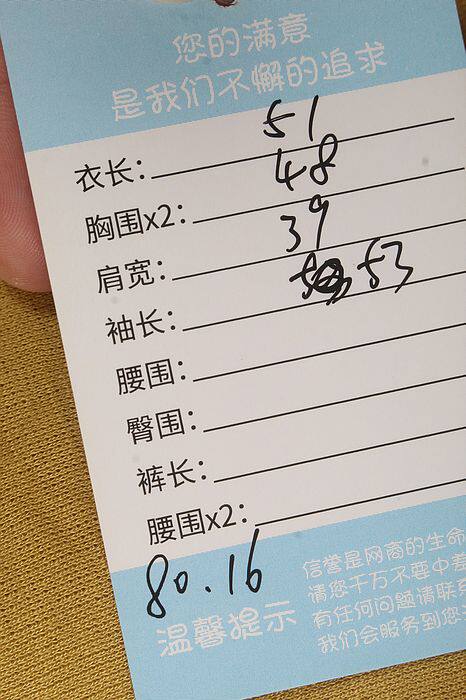 您的满意
是我们不懈的追求
衣长: 51
胸围x2: 48
肩宽: 39
袖长: 53
腰围:
臀围:
裤长:
腰围x2:
80.16
温馨提示
信誉是网商的生命
请您千万不要中差
有任何问题请联系
我们会服务到您